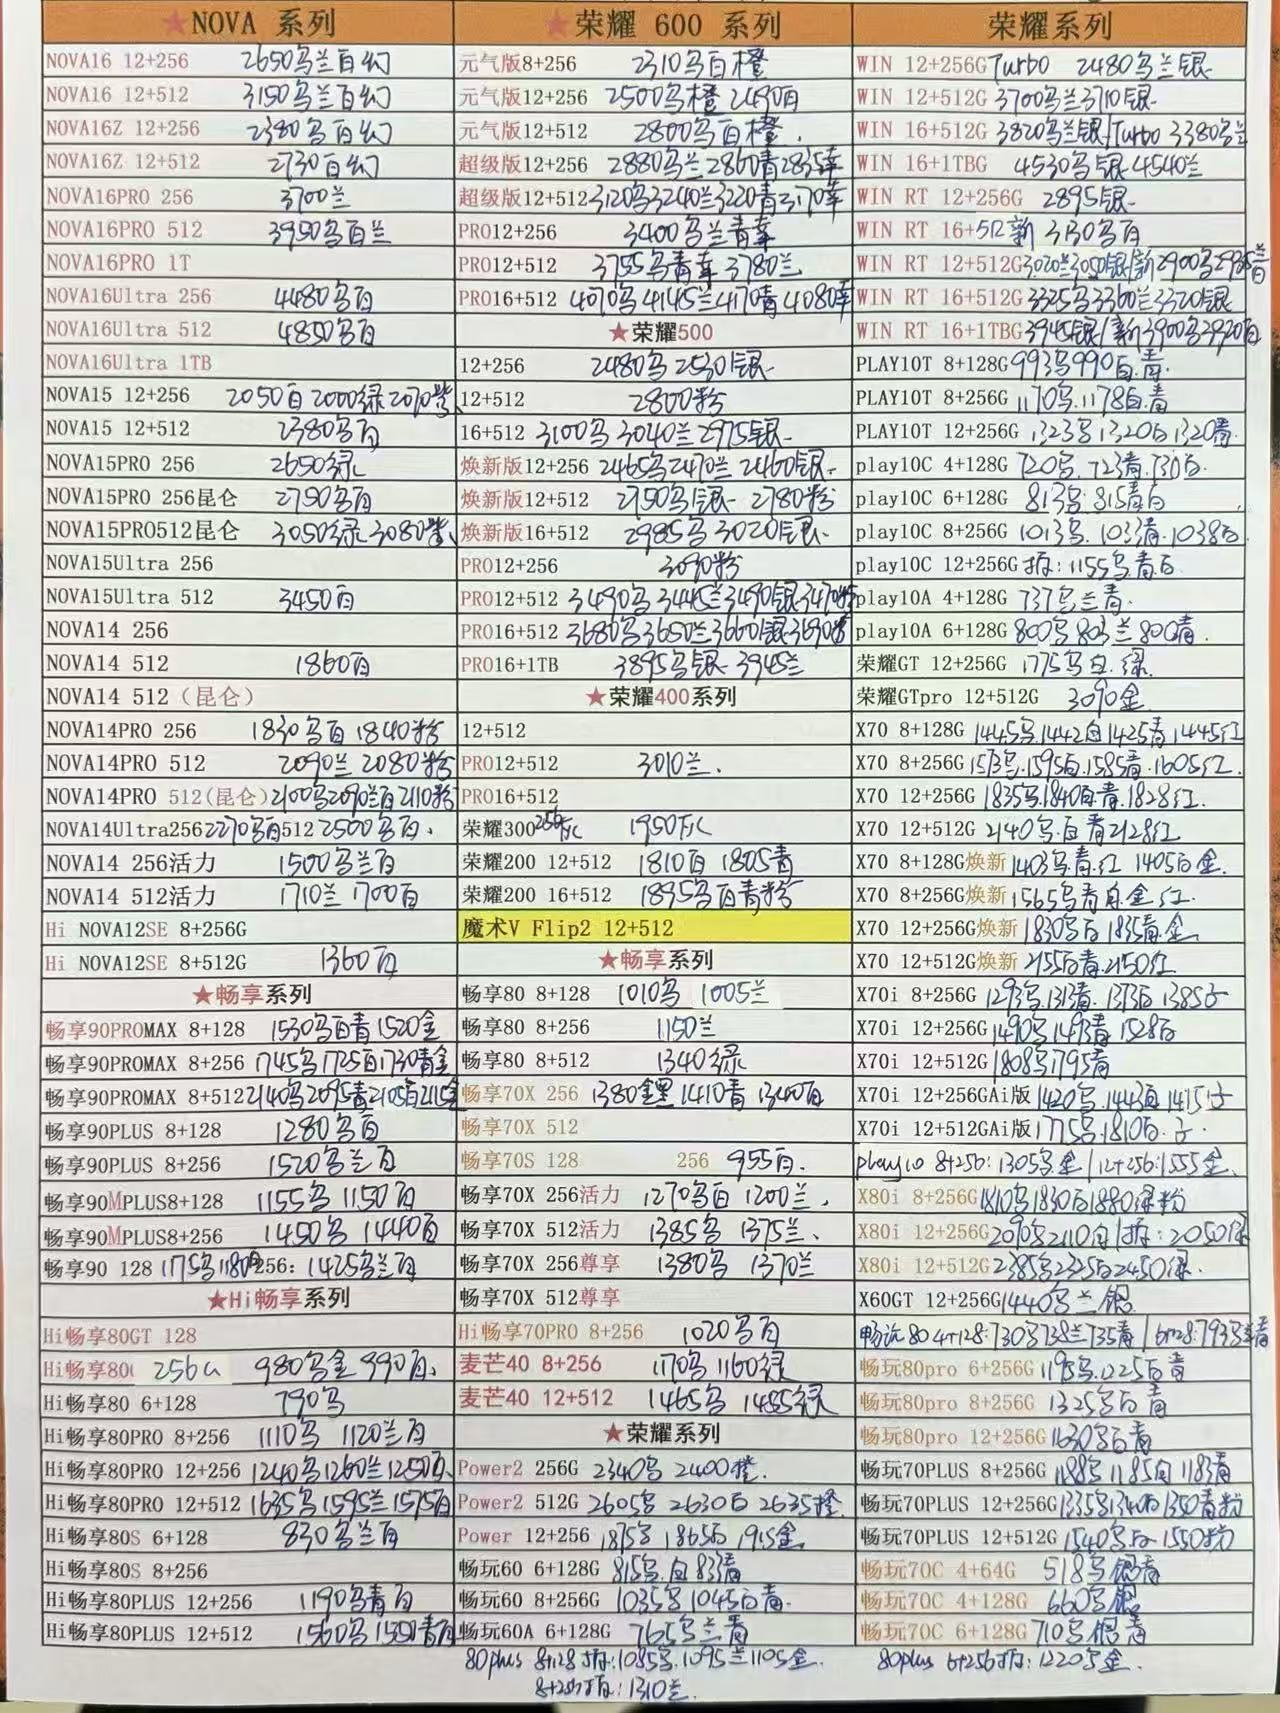 ★NOVA 系列
NOVA16 12+256 2650乌兰白幻
NOVA16 12+512 3150乌兰白幻
NOVA16Z 12+256 2380乌白幻
NOVA16Z 12+512 2730白幻
NOVA16PRO 256 3700兰
NOVA16PRO 512 3950乌白兰
NOVA16PRO 1T
NOVA16Ultra 256 4480乌白
NOVA16Ultra 512 4850乌白
NOVA16Ultra 1TB
NOVA15 12+256 2050白2000绿2070紫
NOVA15 12+512 2380乌白
NOVA15PRO 256 2650绿
NOVA15PRO 256昆仑 2750乌白
NOVA15PRO512昆仑 3050绿3080紫
NOVA15Ultra 256
NOVA15Ultra 512 3450白
NOVA14 256
NOVA14 512 1860白
NOVA14 512（昆仑）
NOVA14PRO 256 1830乌白 1840粉
NOVA14PRO 512 2090兰 2080粉
NOVA14PRO 512(昆仑) 2100乌2090兰白2110粉
NOVA14Ultra256 2270乌白512 2500乌白.
NOVA14 256活力 1500乌兰白
NOVA14 512活力 1710兰 1700白
Hi NOVA12SE 8+256G
Hi NOVA12SE 8+512G 1360白
★畅享系列
畅享90PROMAX 8+128 1530乌白青1520金
畅享90PROMAX 8+256 1745乌1725白1730青金
畅享90PROMAX 8+512 2140乌2095青2105白2115金
畅享90PLUS 8+128 1280乌白
畅享90PLUS 8+256 1520乌兰白
畅享90MPLUS8+128 1155乌 1150白
畅享90MPLUS8+256 1450乌 1440白
畅享90 128 1175乌1180白256: 1425乌兰白
★Hi畅享系列
Hi畅享80GT 128
Hi畅享80 256G 980乌金 990白.
Hi畅享80 6+128 790乌
Hi畅享80PRO 8+256 1110乌 1120兰白
Hi畅享80PRO 12+256 1240乌1260兰1250白
Hi畅享80PRO 12+512 1635乌1595兰1575白
Hi畅享80S 6+128 830乌兰白
Hi畅享80S 8+256
Hi畅享80PLUS 12+256 1190乌青白
Hi畅享80PLUS 12+512 1560乌1550青白
★荣耀 600 系列
元气版8+256 2310乌白橙
元气版12+256 2500乌橙 2490白
元气版12+512 2800乌白橙.
超级版12+256 2880乌兰2860青2835幸
超级版12+512 3120乌3240兰3220青3170幸
PRO12+256 3400乌兰青幸
PRO12+512 3755乌青幸 3780兰
PRO16+512 4070乌4145兰4170青4080幸
★荣耀500
12+256 2480乌 2530银
12+512 2800粉
16+512 3100乌 3040兰2975银
焕新版12+256 2465乌2470兰 2460银
焕新版12+512 2750乌银 2780粉
焕新版16+512 2985乌 3020银
PRO12+256 3090粉
PRO12+512 3490乌3445兰3490银3470粉
PRO16+512 3680乌3650兰3660银3690粉
PRO16+1TB 3895乌银 3945兰
★荣耀400系列
12+512
PRO12+512 3010兰.
PRO16+512
荣耀300 256灰 1950灰
荣耀200 12+512 1810白 1805青
荣耀200 16+512 1895乌白青粉
魔术V Flip2 12+512
★畅享系列
畅享80 8+128 1010乌 1005兰
畅享80 8+256 1150兰
畅享80 8+512 1340绿
畅享70X 256 1380金黑 1410青 1340白
畅享70X 512
畅享70S 128 256 955白.
畅享70X 256活力 1270乌白 1200兰.
畅享70X 512活力 1385乌 1375兰、
畅享70X 256尊享 1380乌 1370兰
畅享70X 512尊享
Hi畅享70PRO 8+256 1020乌白
麦芒40 8+256 1170乌 1160绿
麦芒40 12+512 1465乌 1455绿
★荣耀系列
Power2 256G 2340乌 2400橙.
Power2 512G 2605乌 2630白 2635橙
Power 12+256 1875乌 1865白 1915金
畅玩60 6+128G 815乌.白 83青
畅玩60 8+256G 1035乌 1045白青.
畅玩60A 6+128G 765乌兰青
80plus 8+128拆:1085乌.1095兰1105金.
8+256拆白:1310兰.
荣耀系列
WIN 12+256G Turbo 2480乌兰银
WIN 12+512G 3700乌兰3710银
WIN 16+512G 3820乌兰银/Turbo 3380乌兰
WIN 16+1TBG 4530乌银4540兰
WIN RT 12+256G 2895银
WIN RT 16+512新 3130乌白
WIN RT 12+512G 3020兰3050银/新2900乌2935兰白
WIN RT 16+512G 3325乌3360兰3320银
WIN RT 16+1TBG 3945银/新3900乌3920白
PLAY10T 8+128G 993乌990白.青.
PLAY10T 8+256G 1170乌.1178白.青
PLAY10T 12+256G 1323乌1320白1320青.
play10C 4+128G 720乌.723青.730白
play10C 6+128G 813乌.815青白
play10C 8+256G 1013乌.1033青.1038白
play10C 12+256G 拆:1155乌.青白
play10A 4+128G 737乌兰青.
play10A 6+128G 800乌803兰800青.
荣耀GT 12+256G 1775乌白.绿
荣耀GTpro 12+512G 3090金
X70 8+128G 1445乌1442白1425青.1445红
X70 8+256G 1573乌.1595白.1585青.1605红.
X70 12+256G 1835乌.1840白.青.1828红.
X70 12+512G 2140乌.白青2128红
X70 8+128G焕新 1403乌.青.红 1405白金.
X70 8+256G焕新 1565乌青白.金.红
X70 12+256G焕新 1830乌白 1835青.金
X70 12+512G焕新 2155白青.2150红
X70i 8+256G 1293乌.1313青.1373白.1385子
X70i 12+256G 1490乌1493青1528白
X70i 12+512G 1808乌1795青
X70i 12+256GAi版 1420乌.1443白1415子
X70i 12+512GAi版 1775乌.1810白.子.
play10 8+256:1305乌金|12+256:1555金.
X80i 8+256G 1810乌1830白1880绿粉
X80i 12+256G 2090乌2110白|拆:2050绿
X80i 12+512G 2385乌2325白2450绿.
X60GT 12+256G 1440乌兰银
畅玩80 4+128:730乌738兰735青|6+128:793乌兰青
畅玩80pro 6+256G 1195乌.1225白青
畅玩80pro 8+256G 1325乌白青
畅玩80pro 12+256G 1630乌白青
畅玩70PLUS 8+256G 1188乌1185白1183青
畅玩70PLUS 12+256G 1335乌1340白1350青粉
畅玩70PLUS 12+512G 1540乌白1550粉
畅玩70C 4+64G 518乌银青
畅玩70C 4+128G 660乌银
畅玩70C 6+128G 710乌银青
80plus 6+256拆:1220乌金.